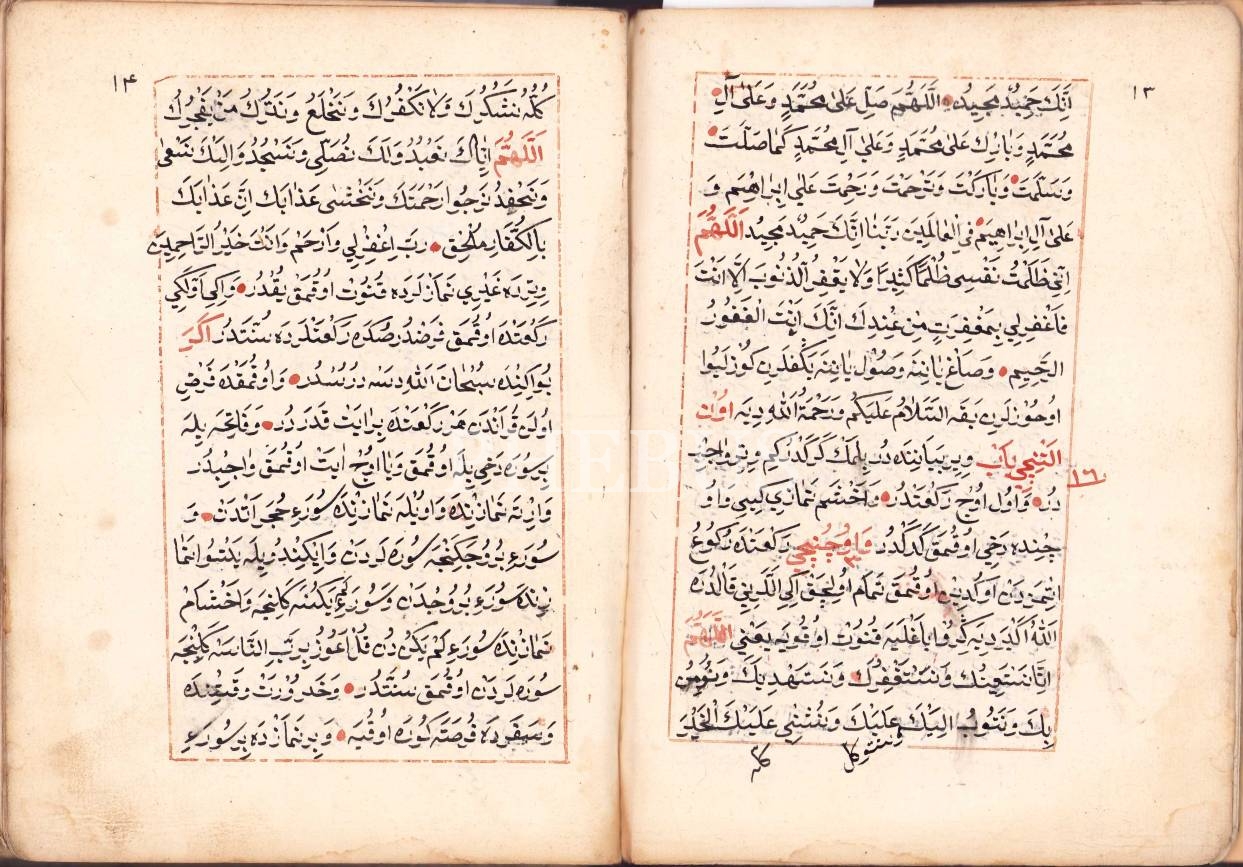 ١٣
اِنَّكَ حَمِيدٌ مَجِيدٌ اَللّٰهُمَّ صَلِّ عَلٰى مُحَمَّدٍ وَعَلٰى آلِ
مُحَمَّدٍ وَبَارِكْ عَلٰى مُحَمَّدٍ وَعَلٰى آلِ مُحَمَّدٍ كَمَا صَلَّيْتَ
وَسَلَّمْتَ وَبَارَكْتَ وَتَرَحَّمْتَ وَرَحِمْتَ عَلٰى اِبْرَاهِيمَ وَ
عَلٰى آلِ اِبْرَاهِيمَ فِى الْعَالَمِينَ رَبَّنَا اِنَّكَ حَمِيدٌ مَجِيدٌ اَللّٰهُمَّ
اِنِّى ظَلَمْتُ نَفْسِى ظُلْمًا كَثِيرًا وَلَا يَغْفِرُ الذُّنُوبَ اِلَّا اَنْتَ
فَاغْفِرْ لِي بِمَغْفِرَتٍ مِنْ عِنْدِكَ اِنَّكَ اَنْتَ الْغَفُورُ
الرَّحِيمِ وصاغ ياننه وصول ياننه بقفلرين كوزليوا
اوجوزلرن بقه السَّلَامُ عَلَيْكُمْ وَرَحْمَةُ اللّٰهِ ديه اون
التنجى باب وتر بياننده در بلمك كركدركم وتر واجب
١٦
در واول اوج ركعتدر واخشم نمازى كبى واو
چنده دخى اوقمق كركدر واوچنجى ركعتده ركوع
اتمزدن اوكدين اوقمق تمام اولجق اكى اللرينى قالدره
اَللّٰهُ اَكْبَر ديه كروا باغليه قنوت اوقويه يعنى اَللّٰهُمَّ
اِنَّا نَسْتَعِينُكَ وَنَسْتَغْفِرُكَ وَنَسْتَهْدِيكَ وَنُؤْمِنُ
بِكَ وَنَتُوبُ اِلَيْكَ عَلَيْكَ وَنُثْنِي عَلَيْكَ الْخَيْرَ
ونتوكل
كله
١٤
كُلَّهُ نَشْكُرُكَ وَلَا نَكْفُرُكَ وَنَخْلَعُ وَنَتْرُكُ مَنْ يَفْجُرُكَ
اَللّٰهُمَّ اِيَّاكَ نَعْبُدُ وَلَكَ نُصَلِّى وَنَسْجُدُ وَاِلَيْكَ نَسْعٰى
وَنَحْفِدُ نَرْجُوا رَحْمَتَكَ وَنَخْشٰى عَذَابَكَ اِنَّ عَذَابَكَ
بِالْكُفَّارِ مُلْحِقٌ رَبِّ اغْفِرْلِي وَارْحَمْ وَاَنْتَ خَيْرُ الرَّاحِمِينَ
وترده غيرى نمازلرده قنوت اوقمق يقدر واكى اولكى
ركعتده اوقمق فرضدر صكره ركعتلرده سنتدر اكر
بو ايكنده سبحان الله ديسه درسدر واوقمقده فرض
اولن قراندن هر ركعتده بر ايت قدردر وفاتحه يله
بر سوره دخى يله اوقمق ويا اوج ايت اوقمق واجبدر
وارته نمازنده واويله نمازنده سورهء حجراتدن و
سورهء بروجكنجه سوره لردن وايكنديله يتسو انما
زنده سورهء بروجدن وسورهء لم يكنه كلنجه واخشام
نمازنده سورهء لم يكن دن قل اعوز برب الناسه كلنجه
سوره لردن اوقمق سنتدر وضرورت وقتنده
وسفرده فرصته كوره اوقيه وبر نمازده بر سورهء